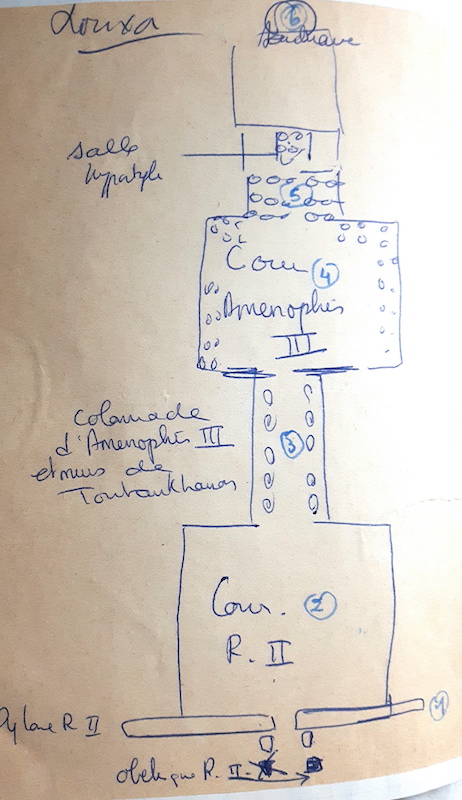 Louxa
6
salle
hypostyle
5
Cour 4
Amenophis
III
colonnade
d'Amenophis III
et murs de
Toutankhamon
3
Cour. 2
R. II
1
Pylone R II
obelisque R. II.